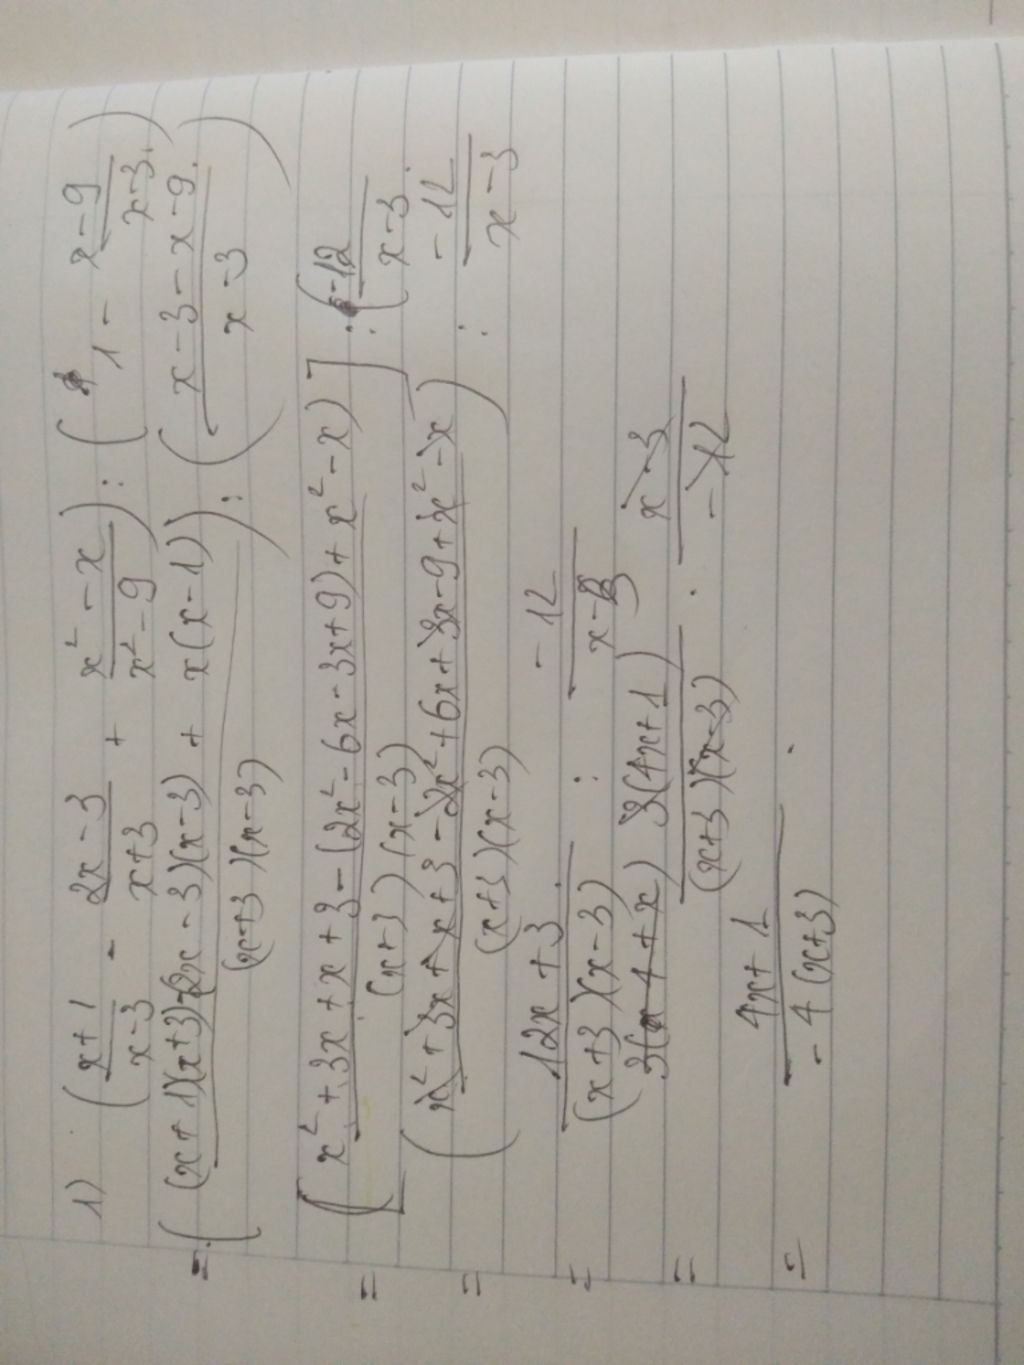 1) ( (x+1)/(x-3) - (2x-3)/(x+3) + (x²-x)/(x²-9) ) : ( 1 - (x-9)/(x-3) )
= ( ((x+1)(x+3)-(2x-3)(x-3) + x(x-1))/((x+3)(x-3)) ) : ( (x-3-x-9)/(x-3) )
= [ (x²+3x+x+3-(2x²-6x-3x+9)+x²-x)/((x+3)(x-3)) ] : (-12/(x-3)
= ( (x²+3x+x+3-2x²+6x+3x-9+x²-x)/((x+3)(x-3)) ) : -12/(x-3)
= (12x+3)/((x+3)(x-3)) : -12/(x-3)
= 3(4x+1)/((x+3)(x-3)) . (x-3)/-12
= (4x+1)/(-4(x+3)) .